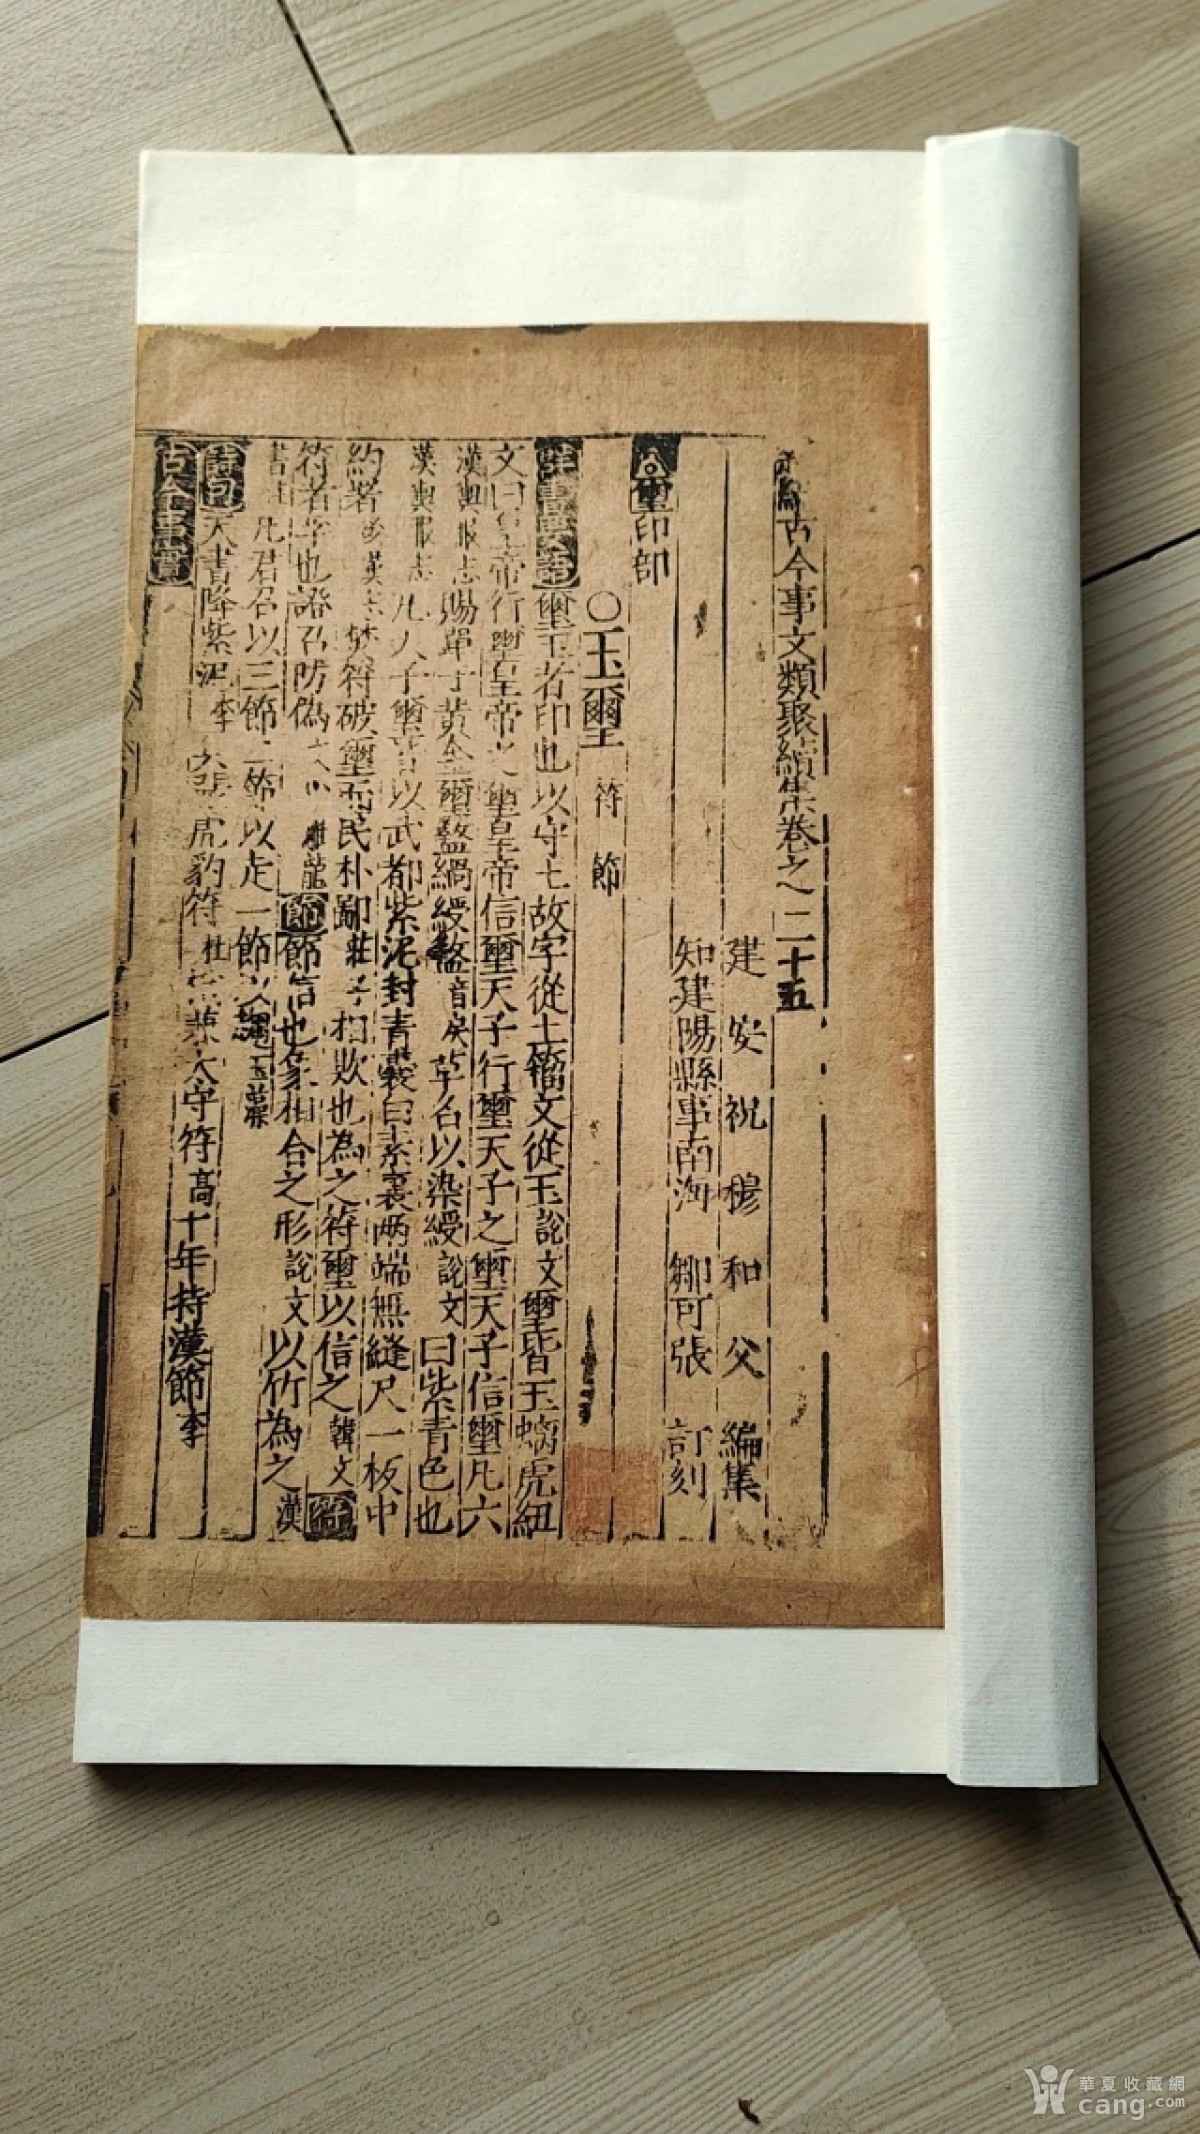 古今事文類聚續集卷之二十五
建安祝穆和父編集
知建陽縣事南海鄒可張訂刻
璽印部
○玉璽 符節
群書要語 璽玉者印也以守土故字從土籀文從玉說文璽皆玉螭虎紐
文曰皇帝行璽皇帝之璽皇帝信璽天子行璽天子之璽天子信璽凡六
漢輿服志賜單于黃金璽盭綬盭音戾草名以染綬說文曰紫青色也
漢輿服志凡天子璽皆以武都紫泥封青囊白素裏兩端無縫尺一板中
約者 焚符破璽而民朴鄙莊子相欺也為之符璽以信之韓文符
符者孚也證召防偽 雕龍節節信也象相合之形說文以竹為之漢
書 凡君召以三節二節以走一節以 玉藻
詩句天書降紫泥李 虎豹符杜 太守符高十年持漢節李
古今事實
華夏收藏網
cang.com